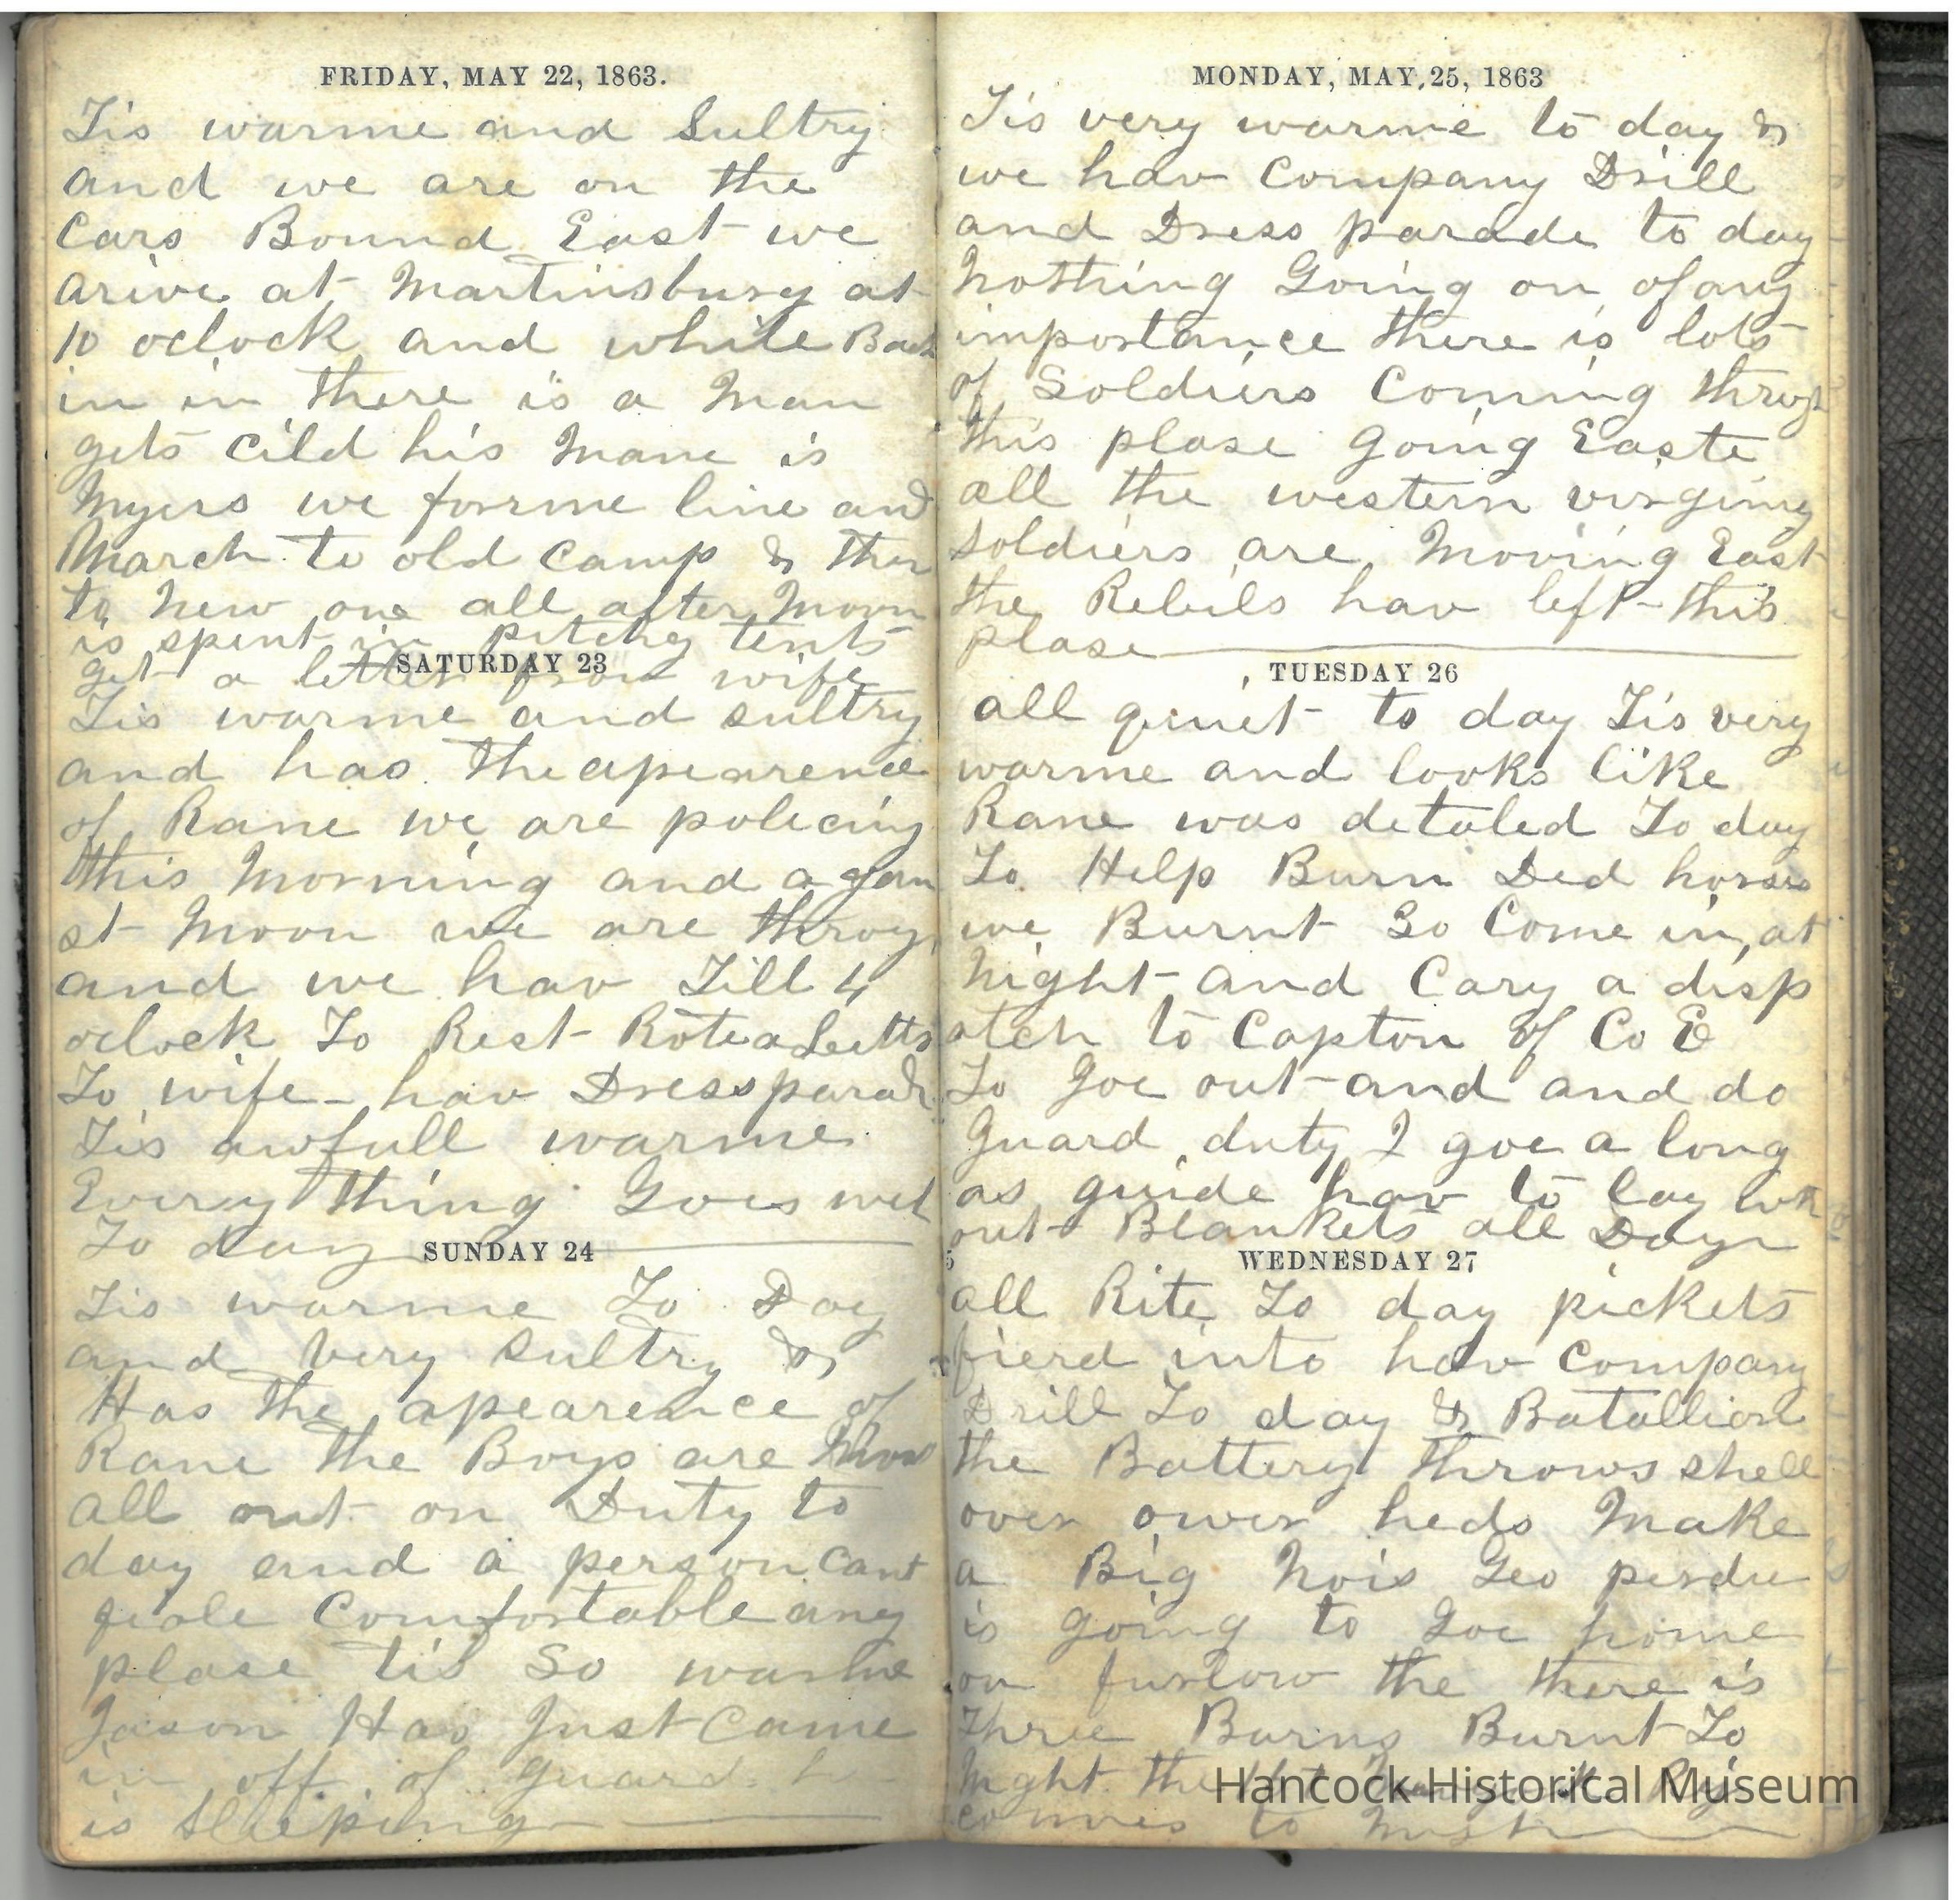 FRIDAY, MAY 22, 1863.
Tis warme and Sultry
and we are on the
Cars Bound East we
arive at Martinsburg at
10 oclock and while Back
in in there is a Man
gets Cild his Mane is
Myers we forme line and
March to old Camp & then
to New one all after Moon
is spent in pitchg tents
get a letter from wife
SATURDAY 23
Tis warme and sultry
and has the apearence
of Rane we are policing
this Morning and a gan
st Moon we are throug
and we hav Till 4
oclock To Rest Rote a Letter
To wife hav Dress parade
Tis awfull warme
Every thing Goes well
To day
SUNDAY 24
Tis warme To Day
and very Sultry &
Has the apearence of
Rane the Boys are
all out on Duty to
day and a person Cant
Comfortable any
plase tis So warme
Jason Has Just Came
in off of guard he
is Sleeping
MONDAY, MAY, 25, 1863
Tis very warme to day &
we hav Company Drill
and Dress parade to day
Nothing Going on of any
importance there is lots
of Soldiers Coming throgh
this plase going Easte
all the western virginy
soldiers are Moving East
the Rebels hav left this
plase
TUESDAY 26
all quiet to day Tis very
warme and looks like
Rane was detaled To day
To Help Burn Ded horses
we Burnt 20 Come in at
Night and Cary a disp
atch to Capton of Co E
To Goe out and and do
Guard duty I goe a long
as guide hav to lay with
out Blankets all Day
WEDNESDAY 27
all Rite To day pickets
fierd into hav Company
Drill To day & Batallion
the Battery throws shell
over ower heds Make
a Big Nois Geo perdue
is going to Goe home
on furlow the there is
Three Barns Burnt To
Night the
comes to
Hancock Historical Museum